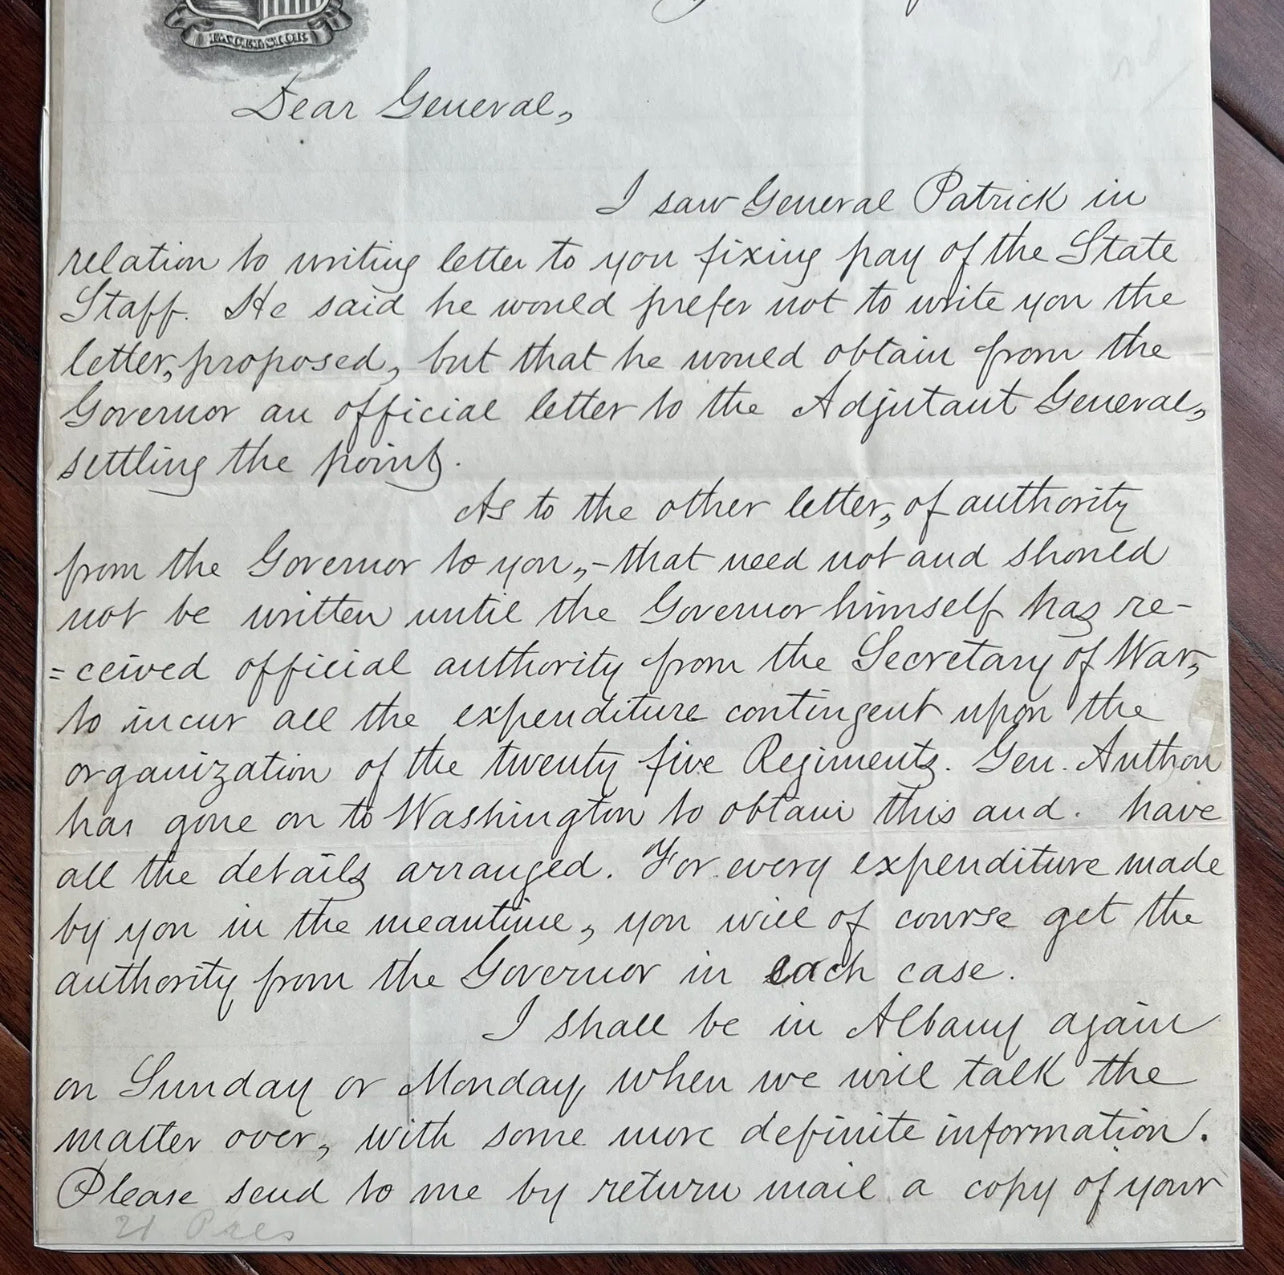 EXCELSIOR
Dear General,
I saw General Patrick in
relation to writing letter to you fixing pay of the State
Staff. He said he would prefer not to write you the
letter, proposed, but that he would obtain from the
Governor an official letter to the Adjutant General,
settling the point.
As to the other letter, of authority
from the Governor to you, - that need not and should
not be written until the Governor himself has re-
=ceived official authority from the Secretary of War,
to incur all the expenditure contingent upon the
organization of the twenty five Regiments. Gen. Anthon
has gone on to Washington to obtain this and. have
all the details arranged. For every expenditure made
by you in the meantime, you will of course get the
authority from the Governor in each case.
I shall be in Albany again
on Sunday or Monday, when we will talk the
matter over, with some more definite information.
Please send to me by return mail a copy of your
21